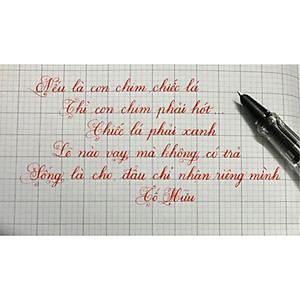 Nếu là con chim, chiếc lá
Thì con chim phải hót...
Chiếc lá phải xanh
Lẽ nào vay, mà không có trả
Sống là cho, đâu chỉ nhận riêng mình
Tố Hữu